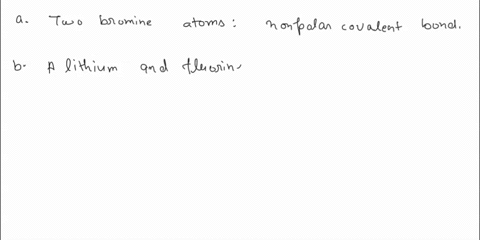 a. Two bromine atoms: nonpolar covalent bond.
b. A lithium and fluorin